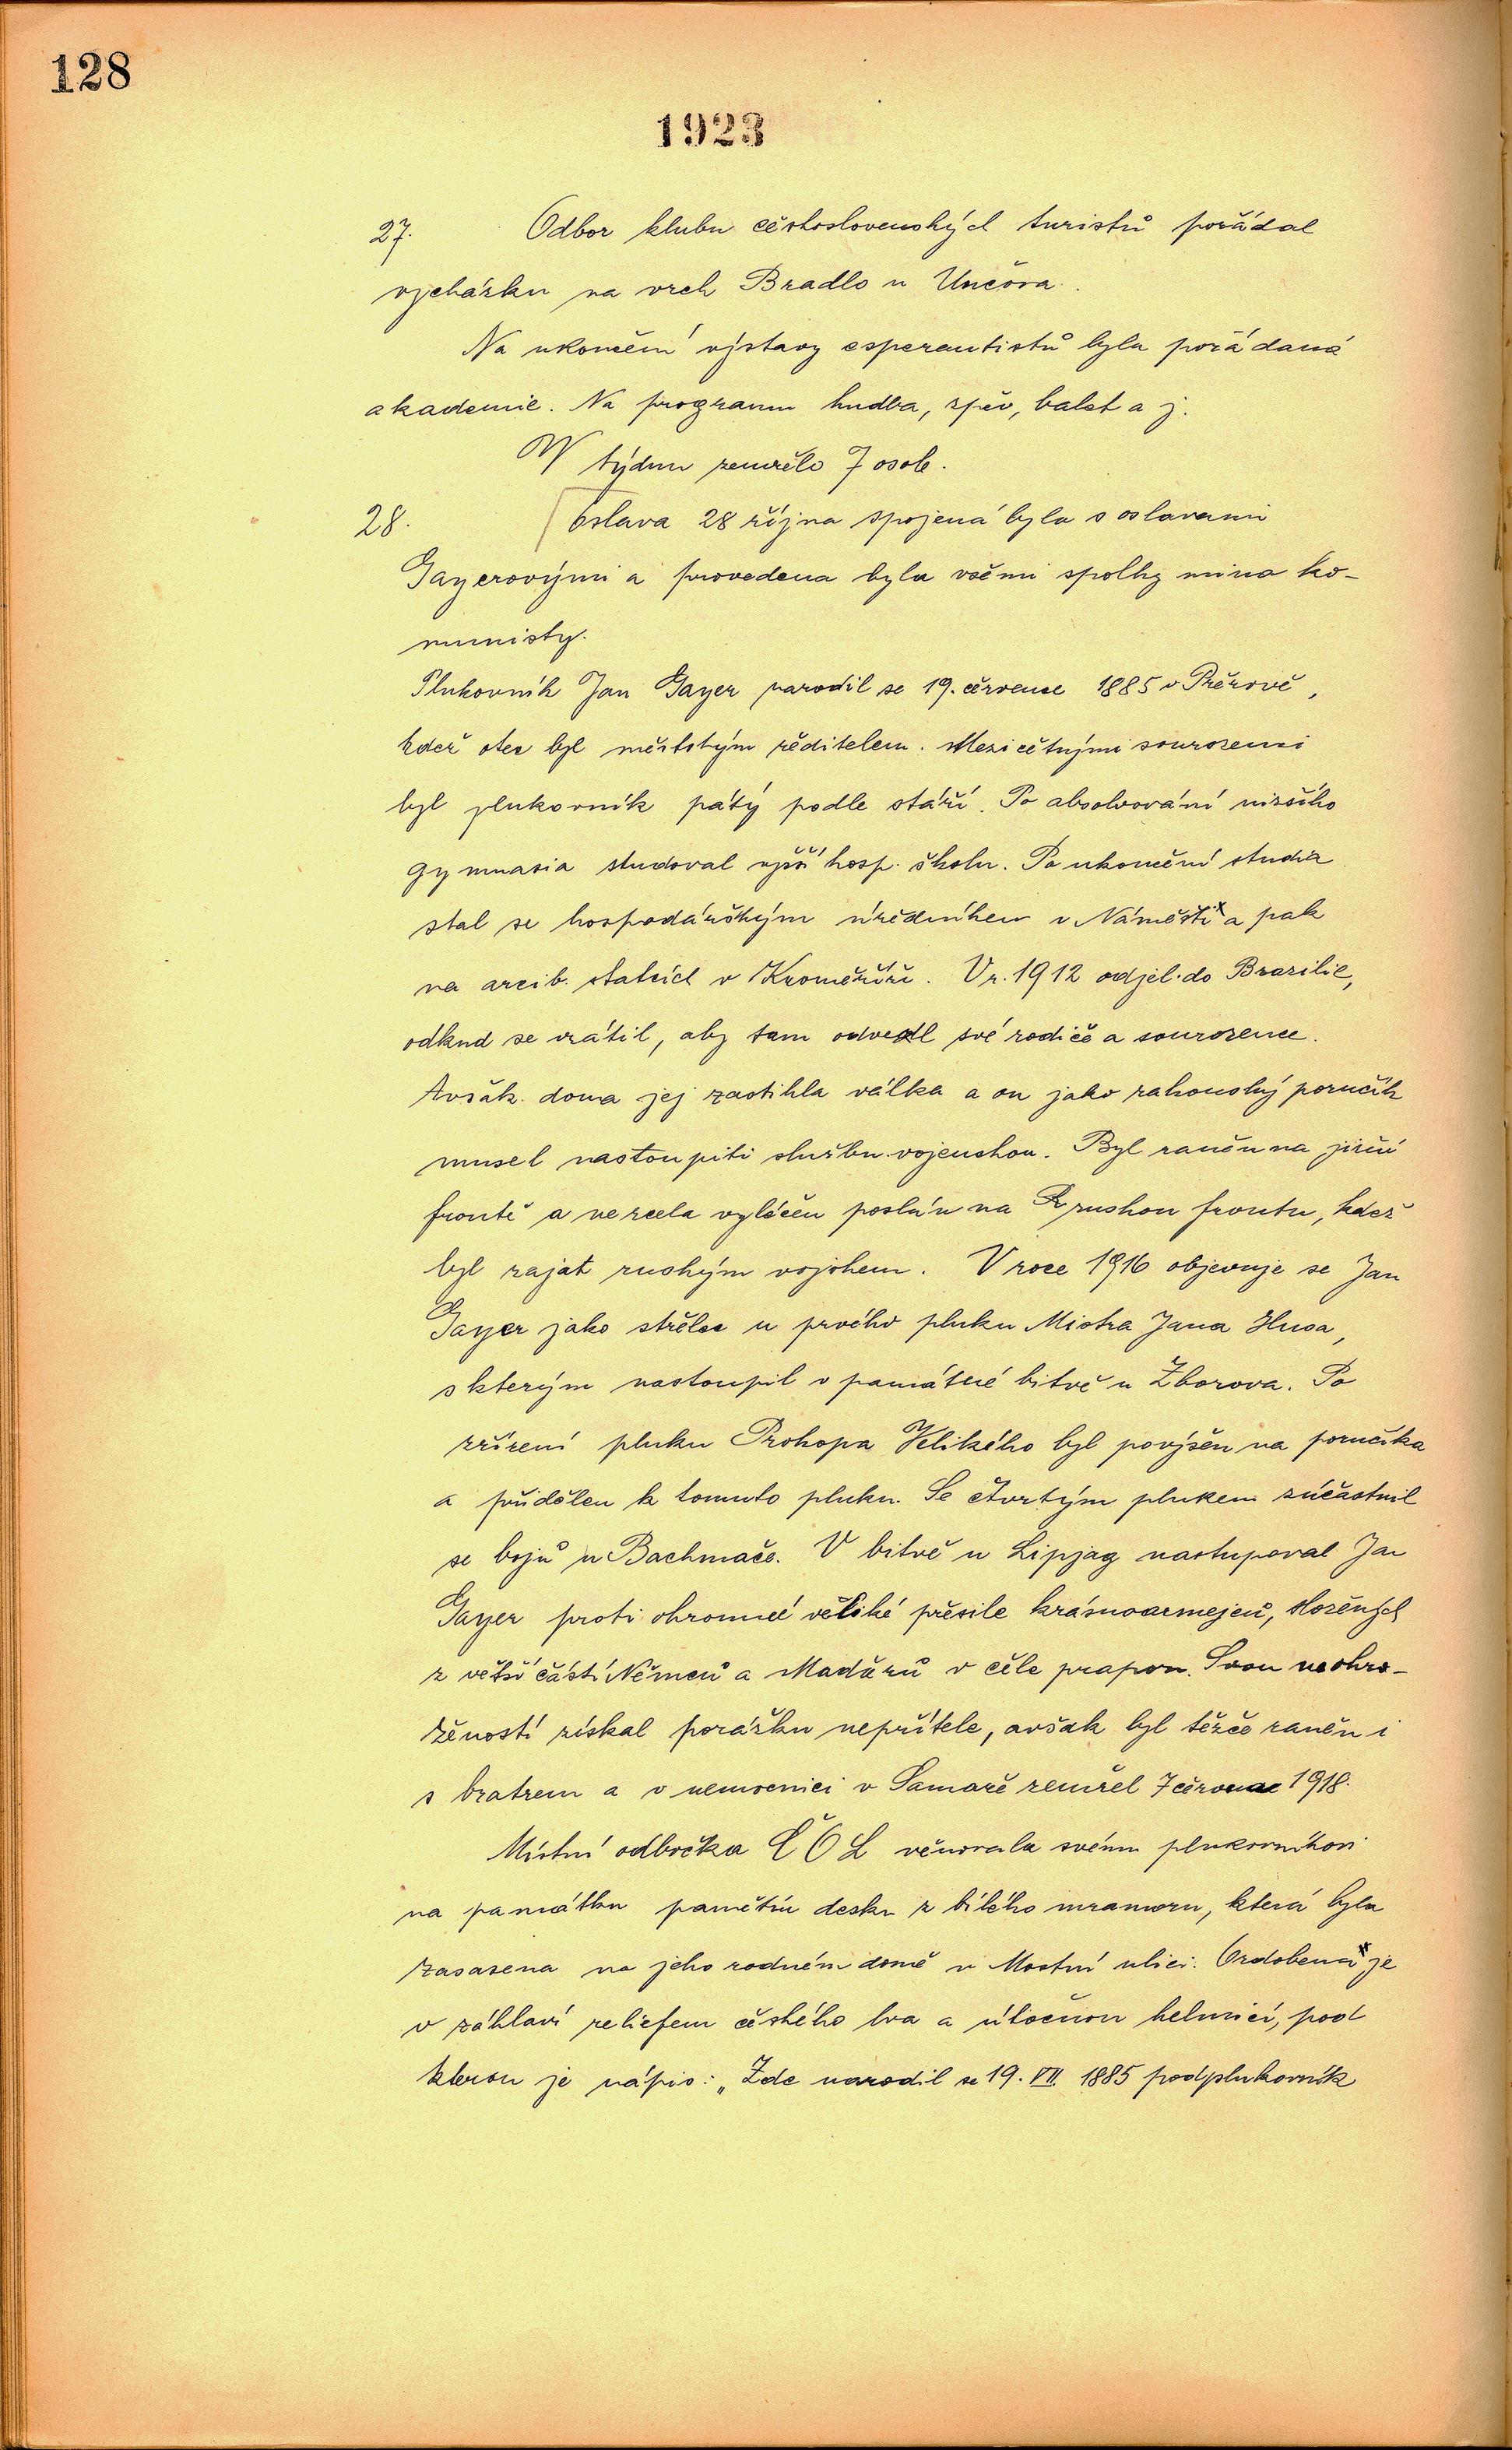 128
1923
27. Odbor klubu československých turistů pořádal
vycházku na vrch Bradlo u Unčova.
Na ukončení výstavy esperantistů byla pořádaná
akademie. Na programu hudba, zpěv, balet a j.
W týdnu zemřelo 7 osob.
28. Oslava 28 října spojená byla s oslavami
Gayerovými a provedena byla všemi spolky mimo ko-
munisty.
Plukovník Jan Gayer narodil se 19. července 1885 v Přerově,
kdež otec byl městským ředitelem. Mezi četnými sourozenci
byl plukovník pátý podle stáří. Po absolvování nižšího
gymnasia studoval vyšší hosp. školu. Po ukončení studia
stal se hospodářským úředníkem v Náměsti x a pak
na arcib. statcích v Kroměříži. V r. 1912 odjel do Brazilie,
odkud se vrátil, aby tam odvedl své rodiče a sourozence.
Avšak doma jej zastihla válka a on jako rakouský poručík
musel nastoupiti službu vojenskou. Byl raněn na jižní
frontě a nezcela vyléčen poslán na ruskou frontu, kdež
byl zajat ruským vojskem. V roce 1916 objevuje se Jan
Gayer jako střelec u prvého pluku Mistra Jana Husa,
s kterým nastoupil v památné bitvě u Zborova. Po
zřízení pluku Prokopa Velikého byl povýšen na poručíka
a přidělen k tomuto pluku. Se čtvrtým plukem súčastnil
se bojů u Bachmače. V bitvě u Lipjag nastupoval Jan
Gayer proti ohromné veliké přesile krásnoarmejců, složených
z větší části Němců a Maďarů v čele praporu. Svou neohro-
ženosti získal porážku nepřítele, avšak byl těžce raněn i
s bratrem a v nemocnici v Samaře zemřel 7 června 1918.
Místní odbočka Č O L věnovala svému plukovníkovi
na památku pamětní desku z bílého mramoru, která byla
zasazena na jeho rodném domě v Mostní ulici. Ozdobena x je
v záhlaví reliefem českého lva a útočnou helmicí, pod
kterou je nápis: „Zde narodil se 19. VII. 1885 podplukovník